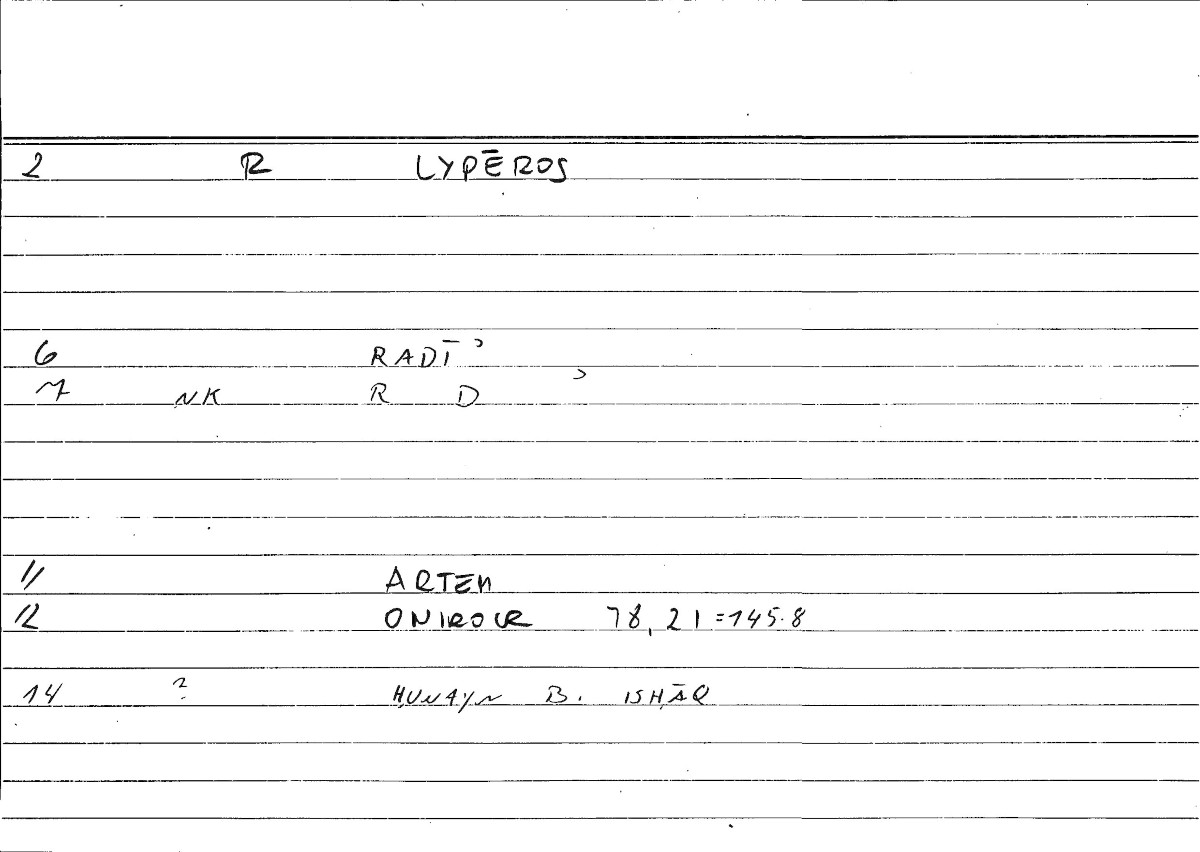 2 R LYPĒROS
6 RADĪʾ
7 NK R D ʾ
11 ARTEM
12 ONIROCR 78,21=145.8
14 ? ḤUNAYN B. ISḤĀQ